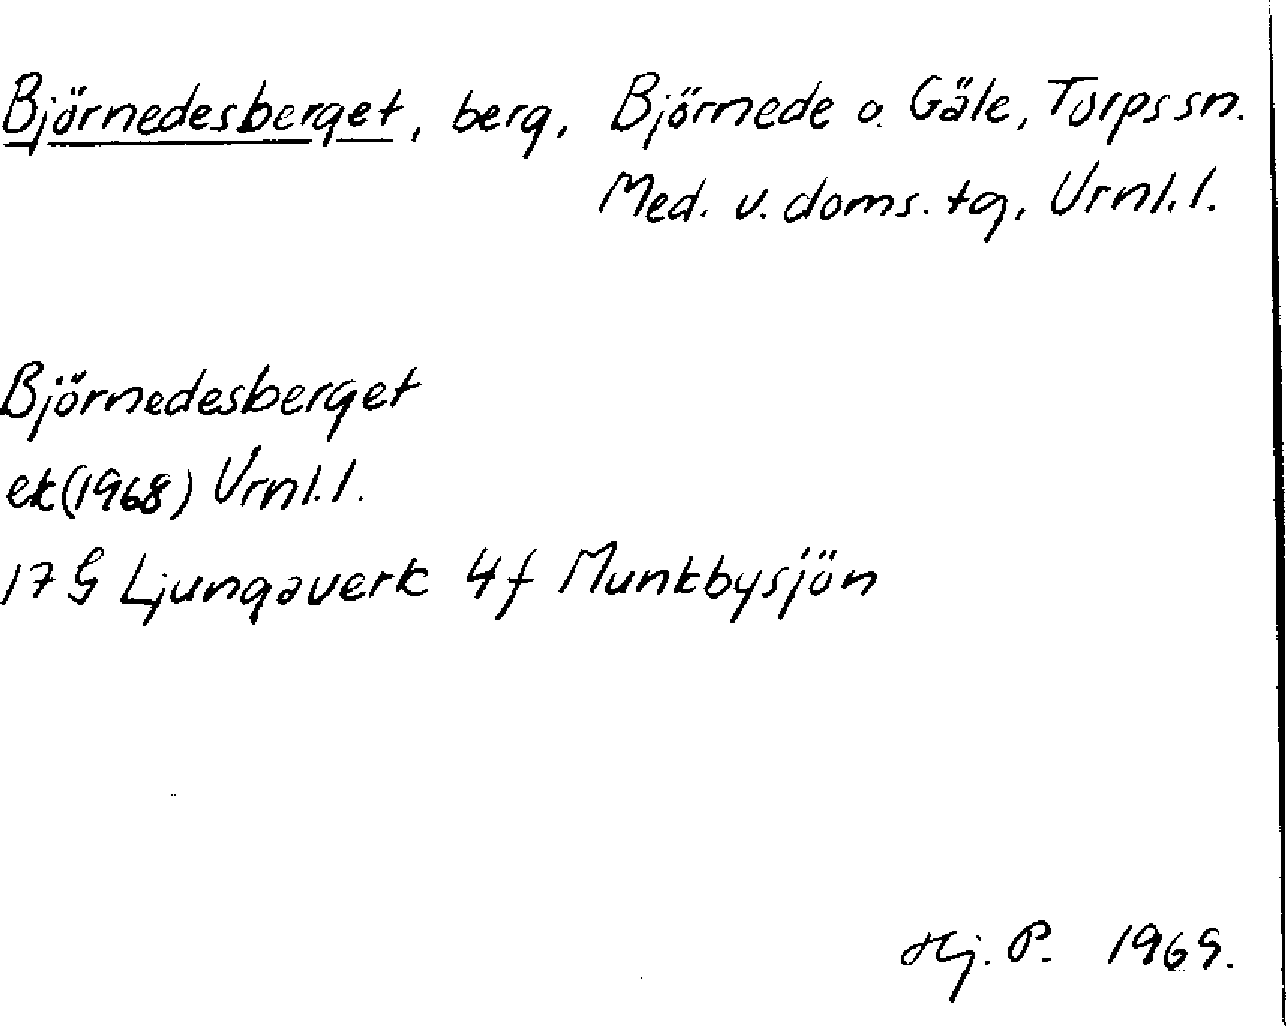 Björnedesberget, berg, Björnede o. Gäle, Torps sn.
Med. v. doms. tg, Vrnl. l.
Björnedesberget
ek (1968) Vrnl. l.
17 G Ljungaverk 4 f Munkbysjön
Hj. P. 1969.